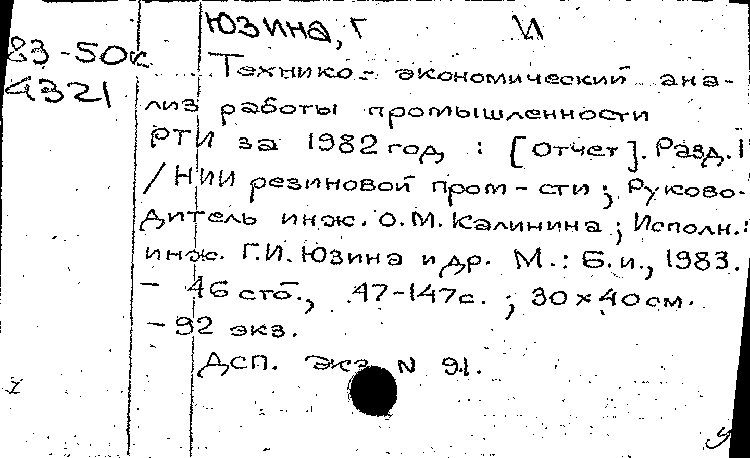 Юзина, Г И
83-50к
4321
Технико-экономический ана-
лиз работы промышленности
РТИ за 1982 год : [Отчет]. Разд. 1
/ НИИ резиновой пром-сти; Руково-
дитель инж. О.М. Калинина; Исполн.:
инж. Г.И. Юзина и др. М.: Б.и., 1983.
- 46 стб., 47-147с. ; 30×40см.
- 92 экз.
ДСП. Экз N 91.